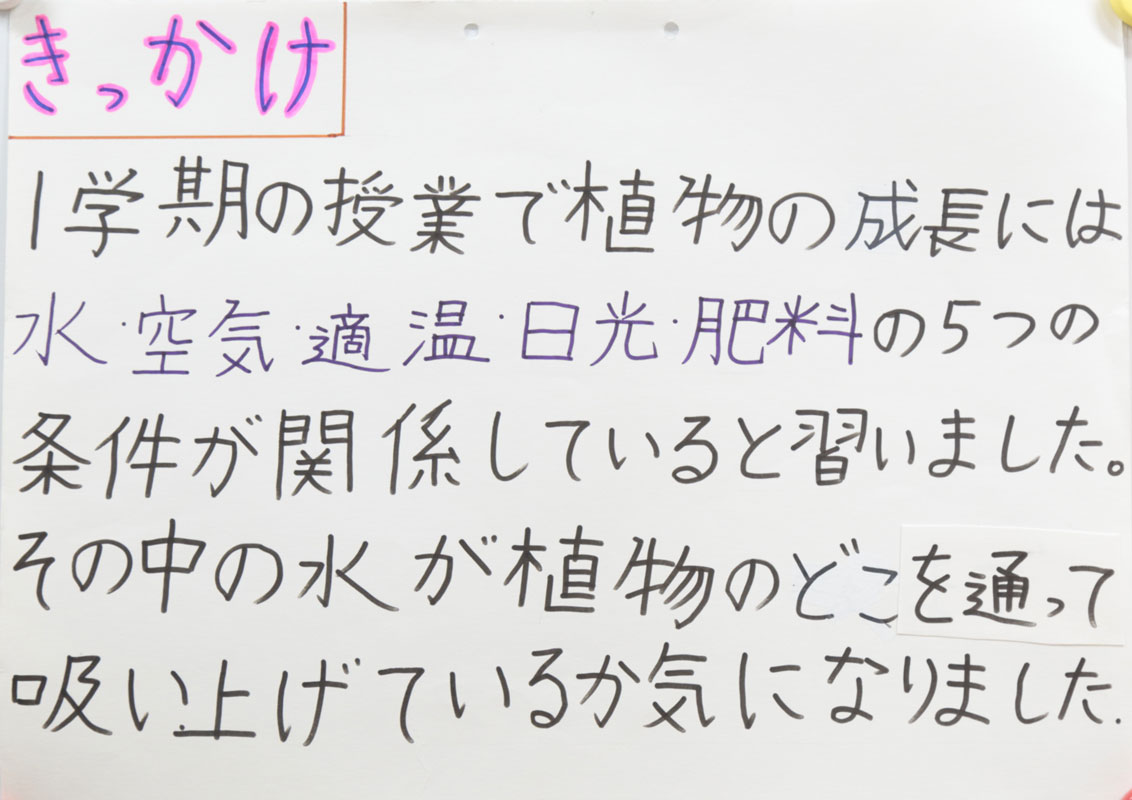 きっかけ
1学期の授業で植物の成長には
水・空気・適温・日光・肥料の5つの
条件が関係していると習いました。
その中の水が植物のどこを通って
吸い上げているか気になりました.